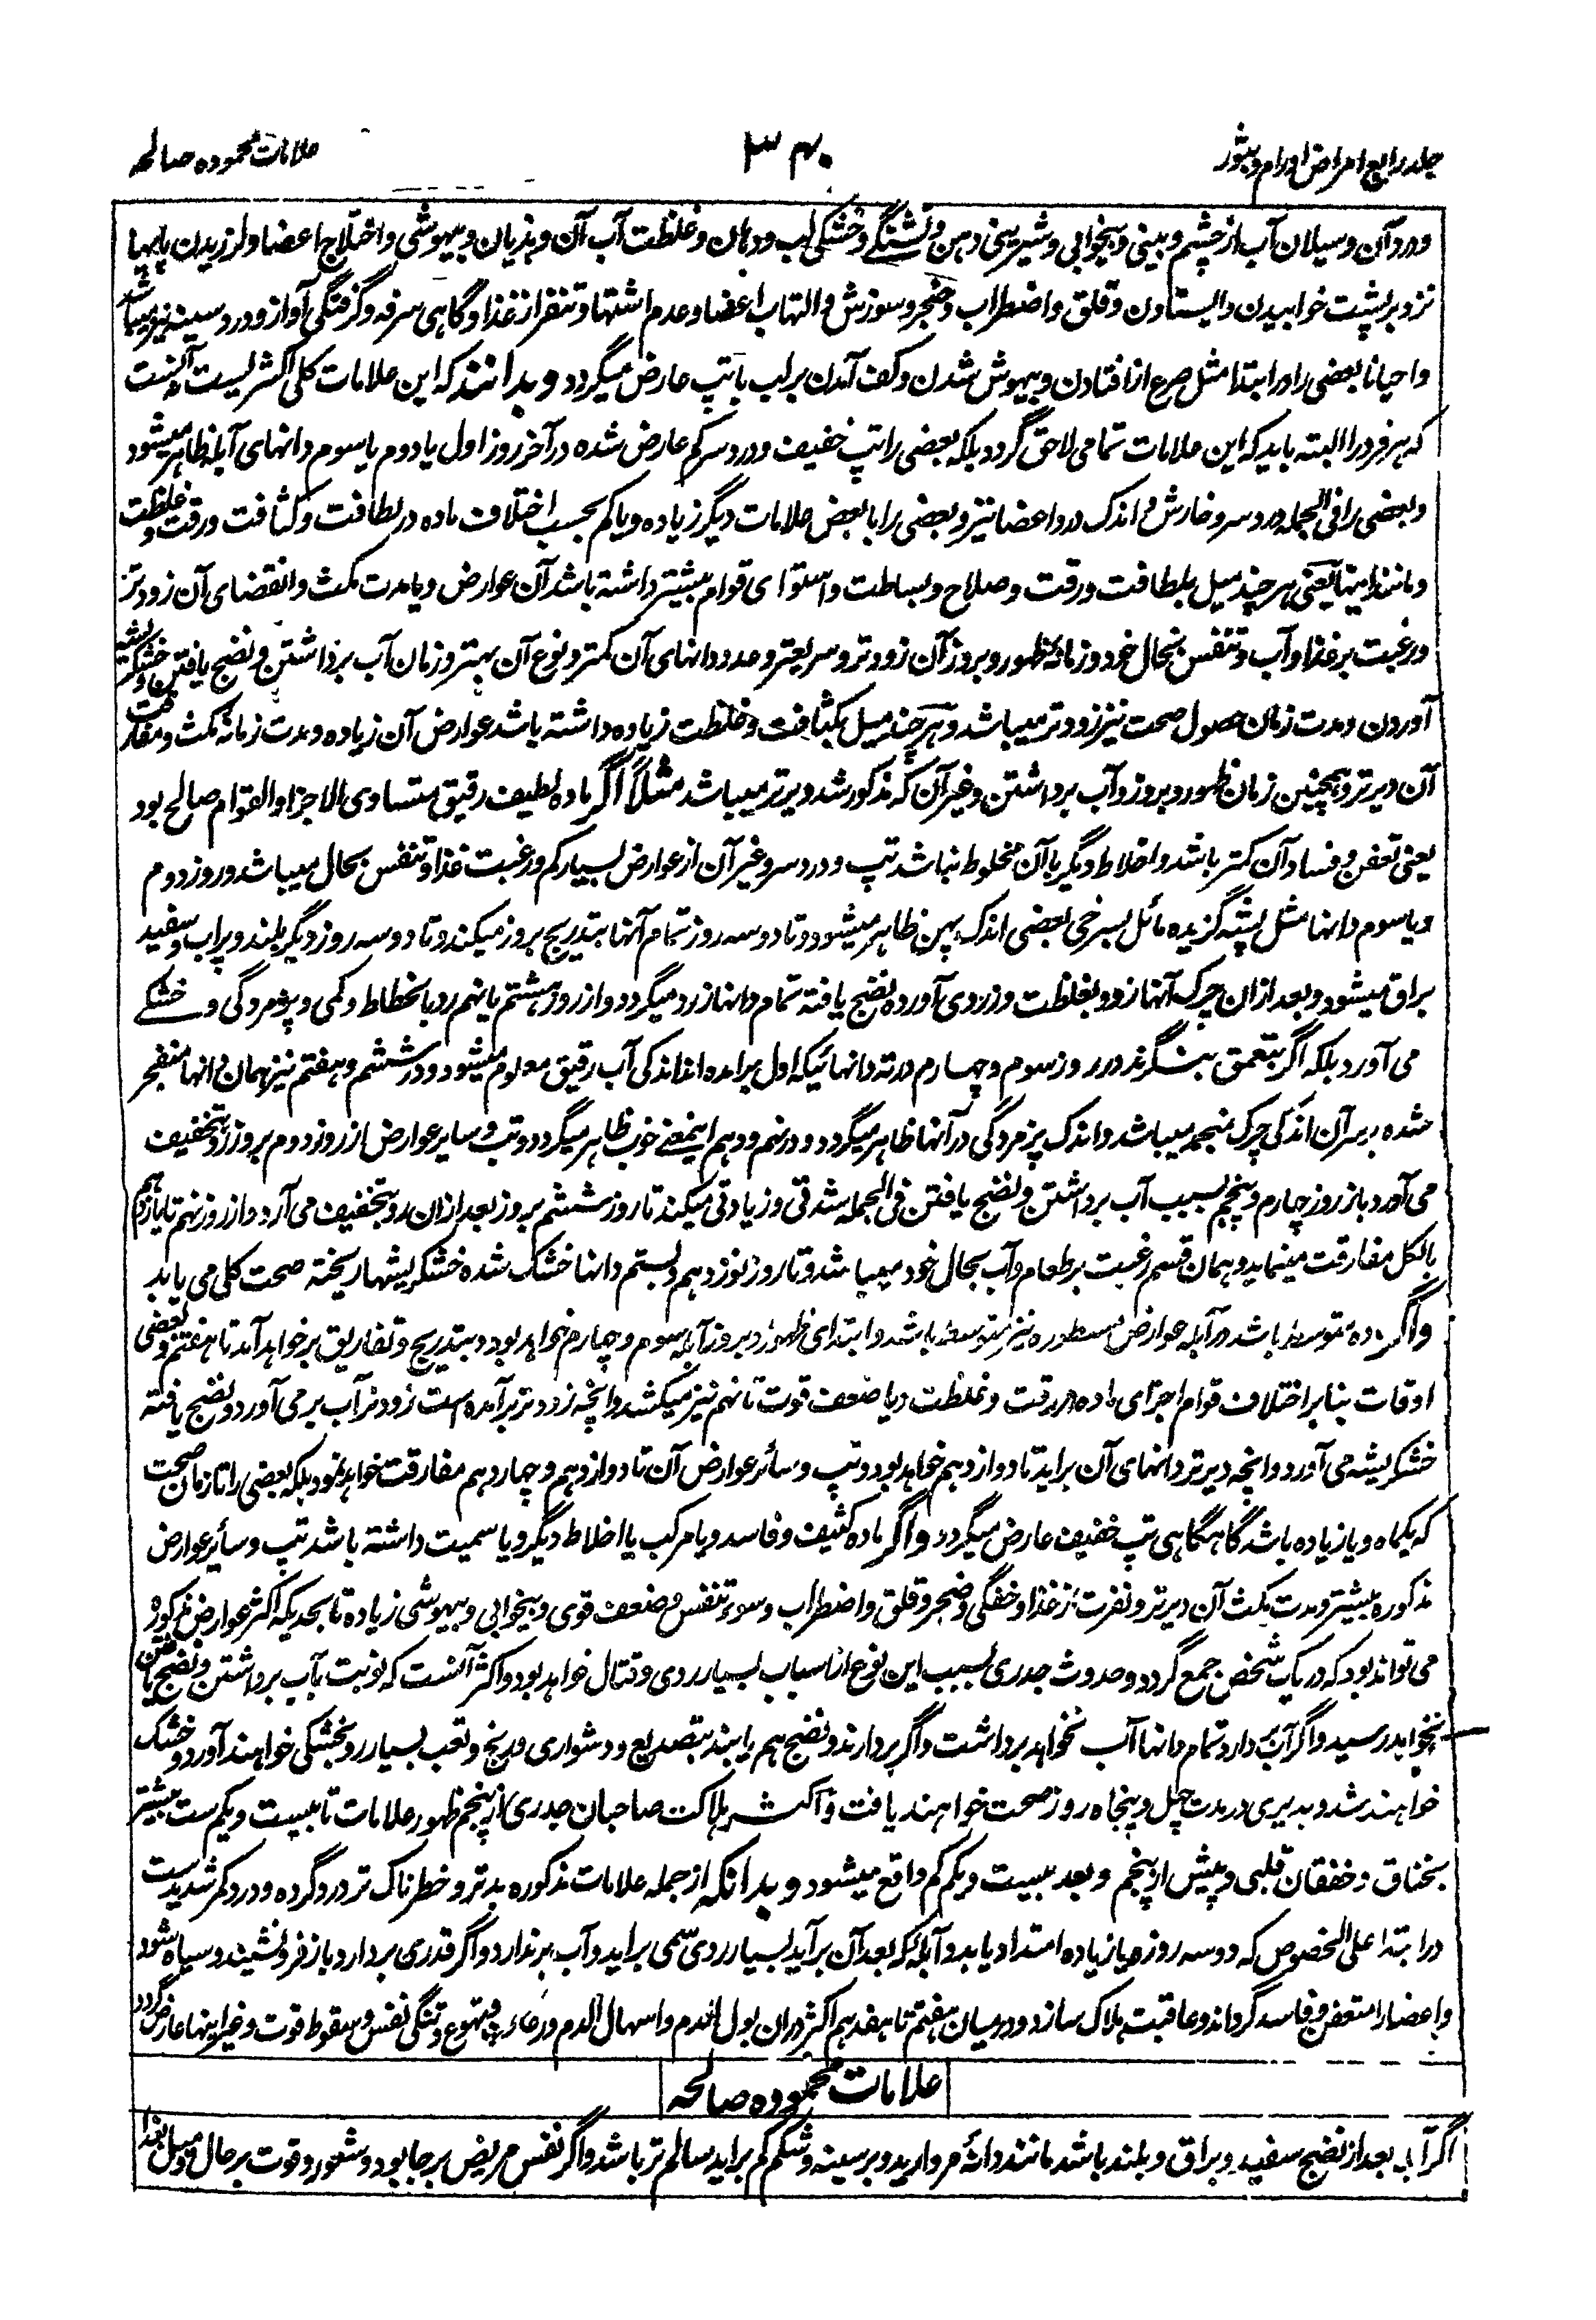 جلد رابع امراض اورام و بثور
۳۴۰
علامات محموده صالحه
و درد آن و سیلان آب از چشم و بینی و بیخوابی و شیرینی دهن و تشنگی و خشکی لب و دهان و غلظت آب آن و هذیان و بیهوشی و اختلاج اعضا و لرزیدن پایها
نزد بر پشت خوابیدن و ایستادن و قلق و اضطراب و ضجر و سوزش و التهاب اعضا و عدم اشتها و تنفر از غذا و گاهی سرفه و گرفتگی آواز و درد سینه نیز میباشد
و احیانا بعضی را در ابتدا مثل صرع از افتادن و بیهوش شدن و کف آمدن بر لب با تپ عارض میگردد و بدانند که این علامات کلی اکثریست نه آنست
که هر فرد را البته باید که این علامات تمامی لاحق گردد بلکه بعضی را تپ خفیف و درد سر کم عارض شده در آخر روز اول یا دوم یا سوم دانهای آبله ظاهر میشود
و بعضی را فی الجمله درد سر و خارش و اندک درد اعضا نیز و بعضی را با بعض علامات دیگر زیاده و یا کم بحسب اختلاف ماده در لطافت و کثافت و رقت و غلظت
و مانند اینها یعنی هر چند میل بلطافت و رقت و صلاح و بساطت و استوای قوام بیشتر داشته باشد آن عوارض و یا مدت مکث و انقضای آن زودتر
و رغبت بر غذا و آب و تنفس بحال خود و زمانه ظهور و بروز آن زودتر و سریعتر و عدد دانهای آن کمتر و نوع آن بهتر و زمان آب برداشتن و نضج یافتن و خشکریشه
آوردن و مدت زمان حصول صحت نیز زودتر میباشد و هر چند میل بکثافت و غلظت زیاده داشته باشد عوارض آن زیاده و مدت زمانه مکث و مفارقت
آن دیرتر و همچنین زمان ظهور و بروز و آب برداشتن و غیر آن که مذکور شد دیرتر میباشد مثلاً اگر ماده لطیف رقیق متساوی الاجزا و القوام صالح بود
یعنی تعفن و فساد آن کمتر باشد و اخلاط دیگر با آن مخلوط نباشد تپ و درد سر و غیر آن از عوارض بسیار کم و رغبت غذا و تنفس بحال میباشد و روز دوم
و یا سوم دانها مثل پشه گزیده مائل بسرخی بعضی اندک پهن ظاهر میشود و تا دو سه روز تمام آنها بتدریج بروز میکند و تا دو سه روز دیگر بلند و پر آب و سفید
براق میشود و بعد ازان چرک آنها زود بغلظت و زردی آورده نضج یافته تمام دانها زرد میگردد و از روز هشتم یا نهم رو بانحطاط و کمی و پژمردگی و خشکی
می آورد بلکه اگر بتعمق بنگرند در روز سوم و چهارم در ته دانهائیکه اول برآمده اند اندکی آب رقیق معلوم میشود و در ششم و هفتم نیز همان دانها منفجر
شده بر سر آن اندکی چرک منجمد میباشد و اندک پژمردگی در آنها ظاهر میگردد و در نهم و دهم اینمعنی خوب ظاهر میگردد و تپ و سایر عوارض از روز دوم بروز رو بتخفیف
می آورد باز روز چهارم و پنجم بسبب آب برداشتن و نضج یافتن فی الجمله شدتی و زیادتی میکند تا روز ششم بروز بعد ازان رو بتخفیف می آرد و از روز نهم تا یازدهم
بالکل مفارقت مینماید و همان قسم رغبت بر طعام و آب بحال خود میباشد و تا روز نوزدهم و بستم دانها خشک شده خشکریشها ریخته صحت کلی می یابد
و اگر ماده متوسط باشد در آبله عوارض مسطوره نیز متوسط باشد و ابتدای ظهور و بروز آبله سوم و چهارم خواهد بود و بتدریج و تفاریق بر خواهد آمد تا هفتم و بعضی
اوقات بنابر اختلاف قوام اجزای ماده در رقت و غلظت و یا ضعف قوت تا نهم نیز میکشد و آنچه زودتر برآمده است زودتر آب بر می آورد و نضج یافته
خشکریشه می آورد و آنچه دیرتر دانهای آن براید تا دوازدهم خواهد بود و تپ و سائر عوارض آن تا دوازدهم و چهاردهم مفارقت خواهد نمود بلکه بعضی را تا زمان صحت
که یکماه و یا زیاده باشد گاهگاهی تپ خفیف عارض میگردد و اگر ماده کثیف و فاسد و یا مرکب با اخلاط دیگر و یا سمیت داشته باشد تپ و سائر عوارض
مذکوره بیشتر و مدت مکث آن دیرتر و نفرت از غذا و خفگی و ضجر و قلق و اضطراب و سوء تنفس و ضعف قوی و بیخوابی و بیهوشی زیاده تا بحدیکه اکثر عوارض مذکوره
می تواند بود که در یک شخص جمع گردد و حدوث جدری بسبب این نوع از اسباب بسیار ردی و قتال خواهد بود و اکثر آنست که نوبت بآب برداشتن و نضج یافتن
نخواهد رسید و اگر آب بردارد تمام دانها آب نخواهد برداشت و اگر بردارند و نضج هم یابند بتصدیع و دشواری و رنج و تعب بسیار رو بخشکی خواهند آورد و خشک
خواهند شد و بدیری در مدت چهل و پنجاه روز صحت خواهند یافت و اکثر هلاکت صاحبان جدری از پنجم ظهور علامات تا بیست و یکم ست بیشتر
بخناق و خفقان قلبی و پیش از پنجم و بعد بیست و یکم کم واقع میشود و بدانکه از جمله علامات مذکوره بدتر و خطرناک تر درد گرده و درد کمر شدیدست
در ابتدا علی الخصوص که دو سه روز و یا زیاده امتداد یابد و آبله که بعد آن برآید بسیار ردی سمی براید و آب برندارد و اگر قدری بردارد باز فرو نشیند و سیاه شود
و اعضا را متعفن و فاسد گرداند و عاقبت هلاک سازد و درمیان هفتم تا هفدهم اکثر دران بول الدم و اسهال الدم و رعاف و تهوع و تنگی نفس و سقوط قوت و غیر اینها عارض گردد
علامات محموده صالحه
اگر آبله بعد از نضج سفید و براق و بلند باشد مانند دانه مروارید و بر سینه و شکم کم براید سالم تر باشد و اگر نفس مریض بر جا بود و شعور و قوت بر حال و میل بغذا